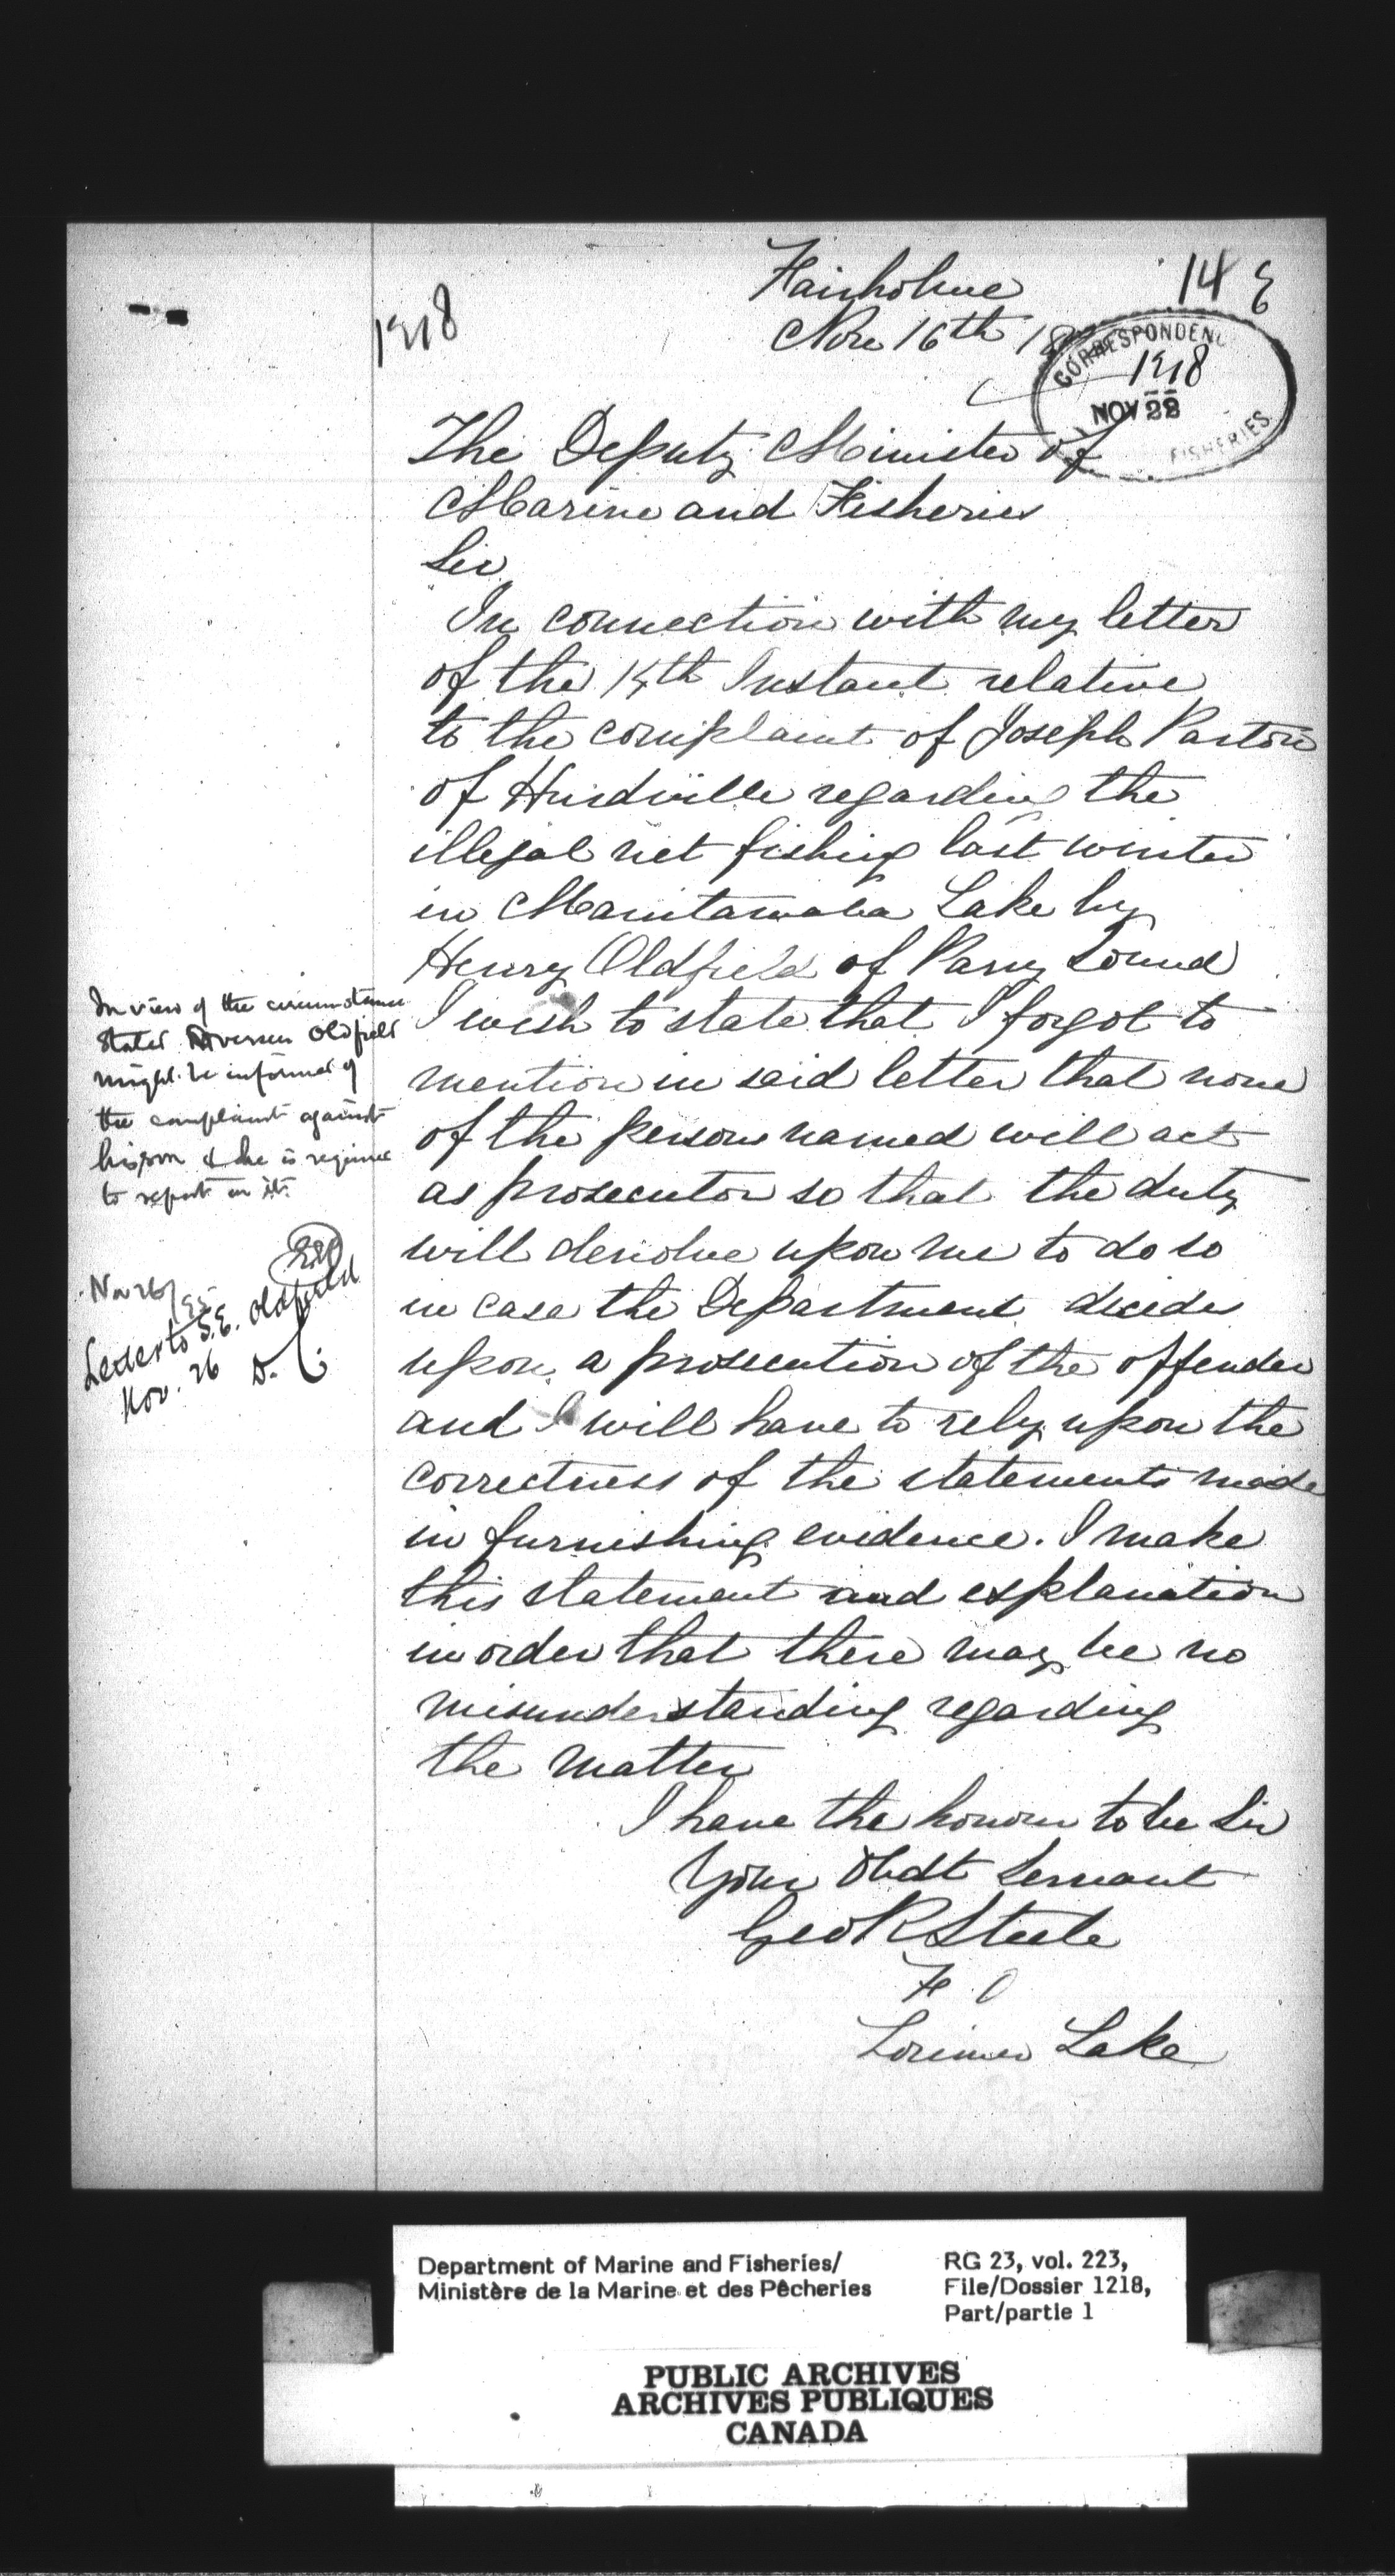 14 E
1218
Fairholme
Nov 16th 18
CORRESPONDENC
1218
NOV 22
FISHERIES
The Deputy Minister of
Marine and Fisheries
Sir
In connection with my letter
of the 14th Instant relative
to the complaint of Joseph Parton
of Hurdville regarding the
illegal net fishing last winter
in Manitawaba Lake by
Henry Oldfield of Parry Sound
I wish to state that I forgot to
mention in said letter that none
of the persons named will act
as prosecutor so that the duty
will devolve upon me to do so
in case the Department decides
upon a prosecution of the offender
and I will have to rely upon the
correctness of the statements made
in furnishing evidence. I make
this statement and explanation
in order that there may be no
misunderstanding regarding
the matter
I have the honour to be Sir
Your Obdt Servant
Geo R Steele
F. O
Lorimer Lake
In view of the circumstance
stated Overseer Oldfield
might be informed of
the complaint against
his son & he is required
to report on it.
Nov 26/95
Letter to S.E. Oldfield
Nov. 26
Department of Marine and Fisheries/
Ministère de la Marine et des Pêcheries
RG 23, vol. 223,
File/Dossier 1218,
Part/partie 1
PUBLIC ARCHIVES
ARCHIVES PUBLIQUES
CANADA